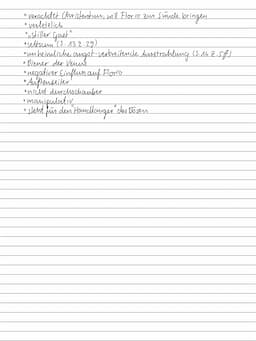 • verachtet Christentum, will Florio zur Sünde bringen
• verletzlich
• "stiller Gast"
• seltsam (S. 13 Z. 29)
• unheimliche, angst-verbreitende Ausstrahlung (S. 14 Z. 5ff)
• Diener der Venus
• negativer Einfluss auf Florio
• Außenseiter
• nicht durchschaubar
• manipulativ
• steht für den "Handlanger" des Bösen